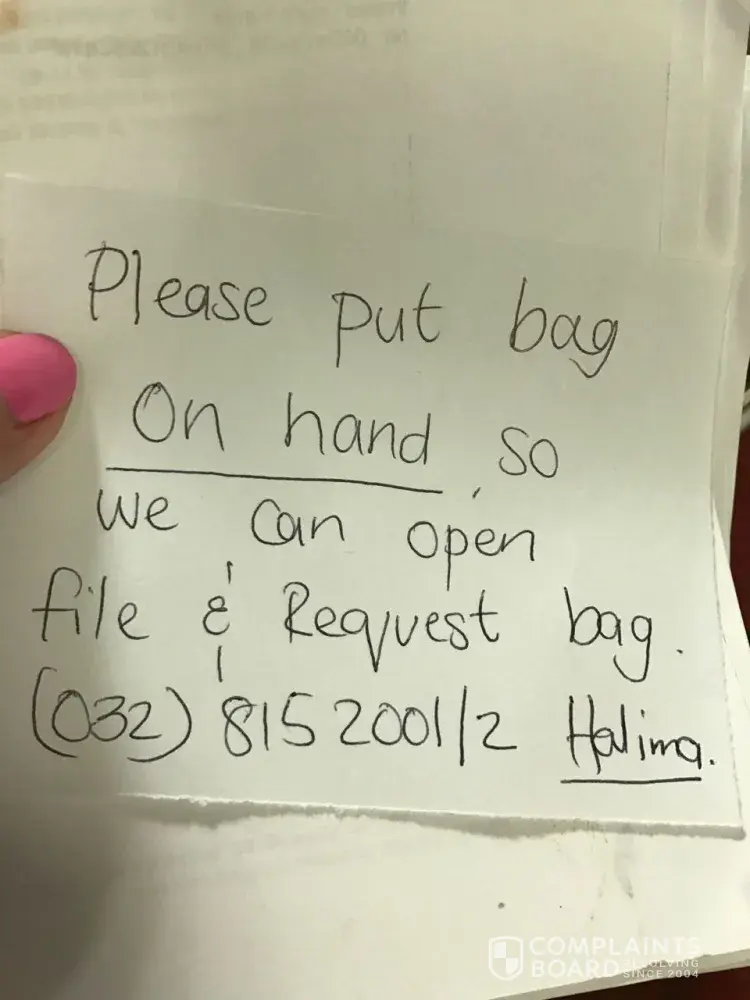 Please put bag
On hand, so
we can open
file & Request bag.
(032) 815 2001/2 Halima.
COMPLAINTS
BOARD RESOLVING
SINCE 2004